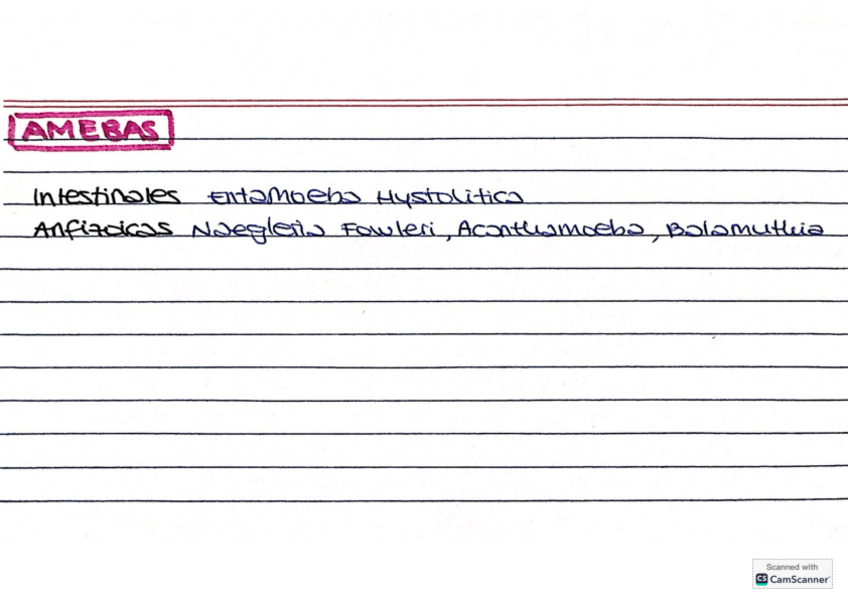 AMEBAS
Intestinales Entamoeba Hystolitica
Anfizoicas Naegleria Fowleri, Acanthamoeba, Balamuthia
Scanned with
CS CamScanner